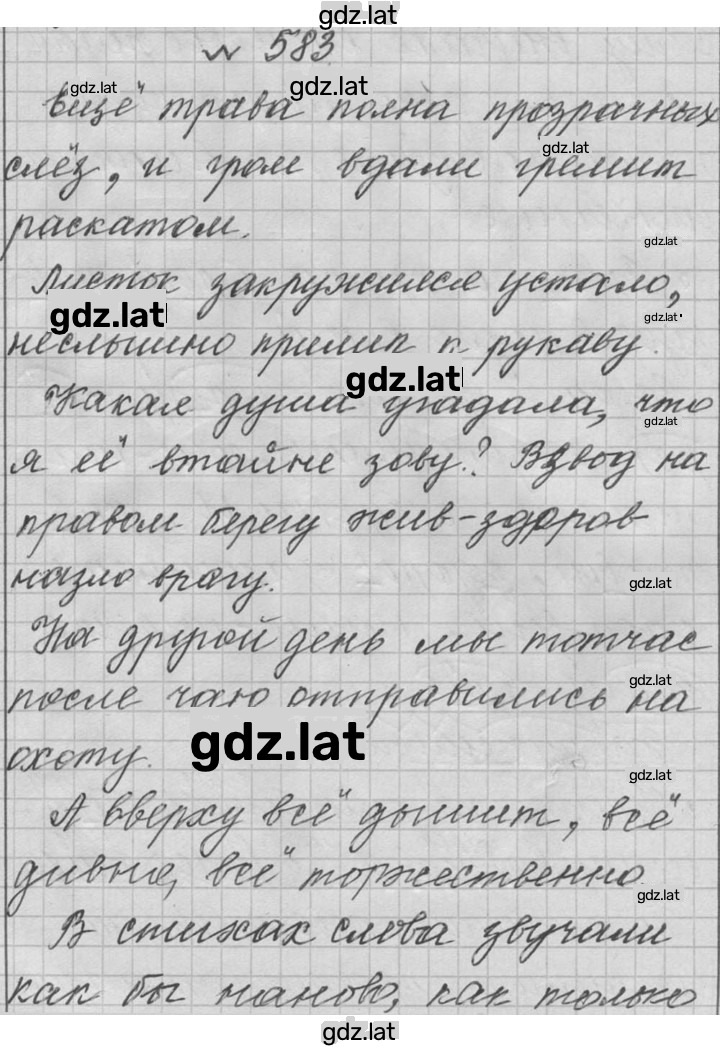 gdz.lat
№ 583
gdz.lat gdz.lat
Ещё трава полна прозрачных
gdz.lat
слёз, и гром вдали гремит
раскатом.
gdz.lat
Листок закружился устало,
gdz.lat gdz.lat
неслышно прилип к рукаву.
gdz.lat
Какая душа угадала, что
gdz.lat
я её втайне зову? Взвод на
правом берегу жив-здоров
назло врагу.
gdz.lat
На другой день мы тотчас
gdz.lat
после чаю отправились на
gdz.lat
охоту.
gdz.lat
А вверху всё дышит, всё
дивно, всё торжественно.
gdz.lat
В стихах слова звучали
как бы наново, как только
gdz.lat